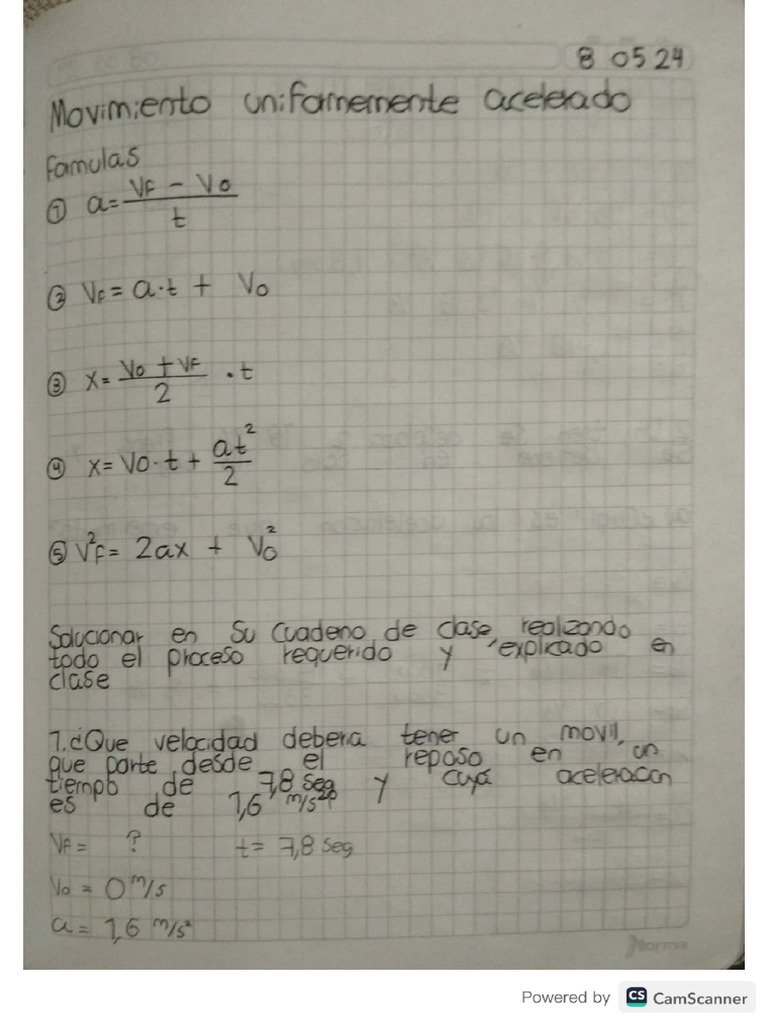 8 05 24
Movimiento uniformemente acelerado
Formulas
① a = (VF - Vo) / t
② VF = a·t + Vo
③ x = (Vo + VF) / 2 · t
④ x = Vo·t + at² / 2
⑤ V²F = 2ax + Vo²
Solucionar en su cuaderno de clase, realizando
todo el proceso requerido y explicado en
clase
1. ¿Que velocidad debera tener un movil,
que parte desde el reposo en un
tiempo de 7,8 seg y cuya aceleracion
es de 1,6 m/s²?
VF = ? t = 7,8 seg
Vo = 0 m/s
a = 1,6 m/s²
Norma
Powered by CS CamScanner